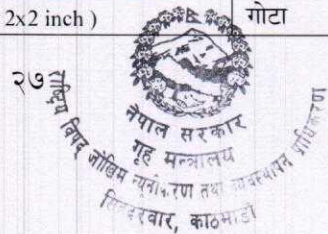 2x2 inch ) गोटा
२७
नेपाल सरकार
गृह मन्त्रालय
राष्ट्रिय विपद् जोखिम न्यूनीकरण तथा व्यवस्थापन प्राधिकरण
सिंहदरवार, काठमाडौं